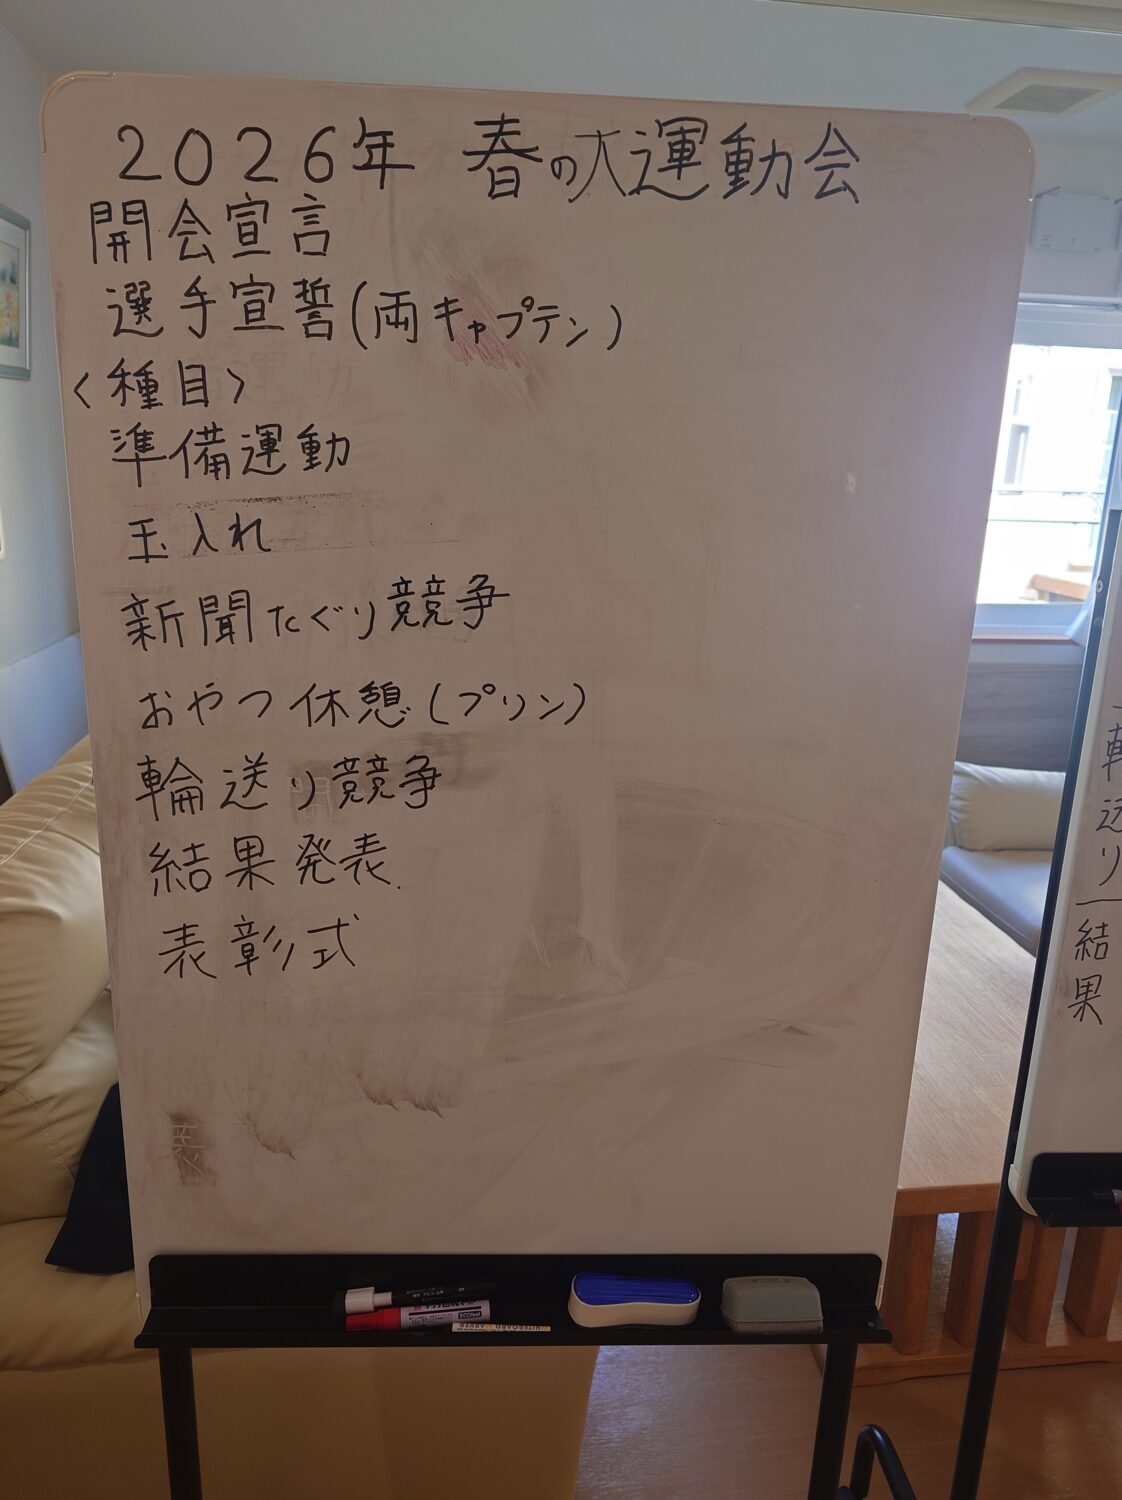 2026年 春の大運動会
開会宣言
選手宣誓(両キャプテン)
〈種目〉
準備運動
玉入れ
新聞たぐり競争
おやつ休憩(プリン)
輪送り競争
結果発表
表彰式
結果